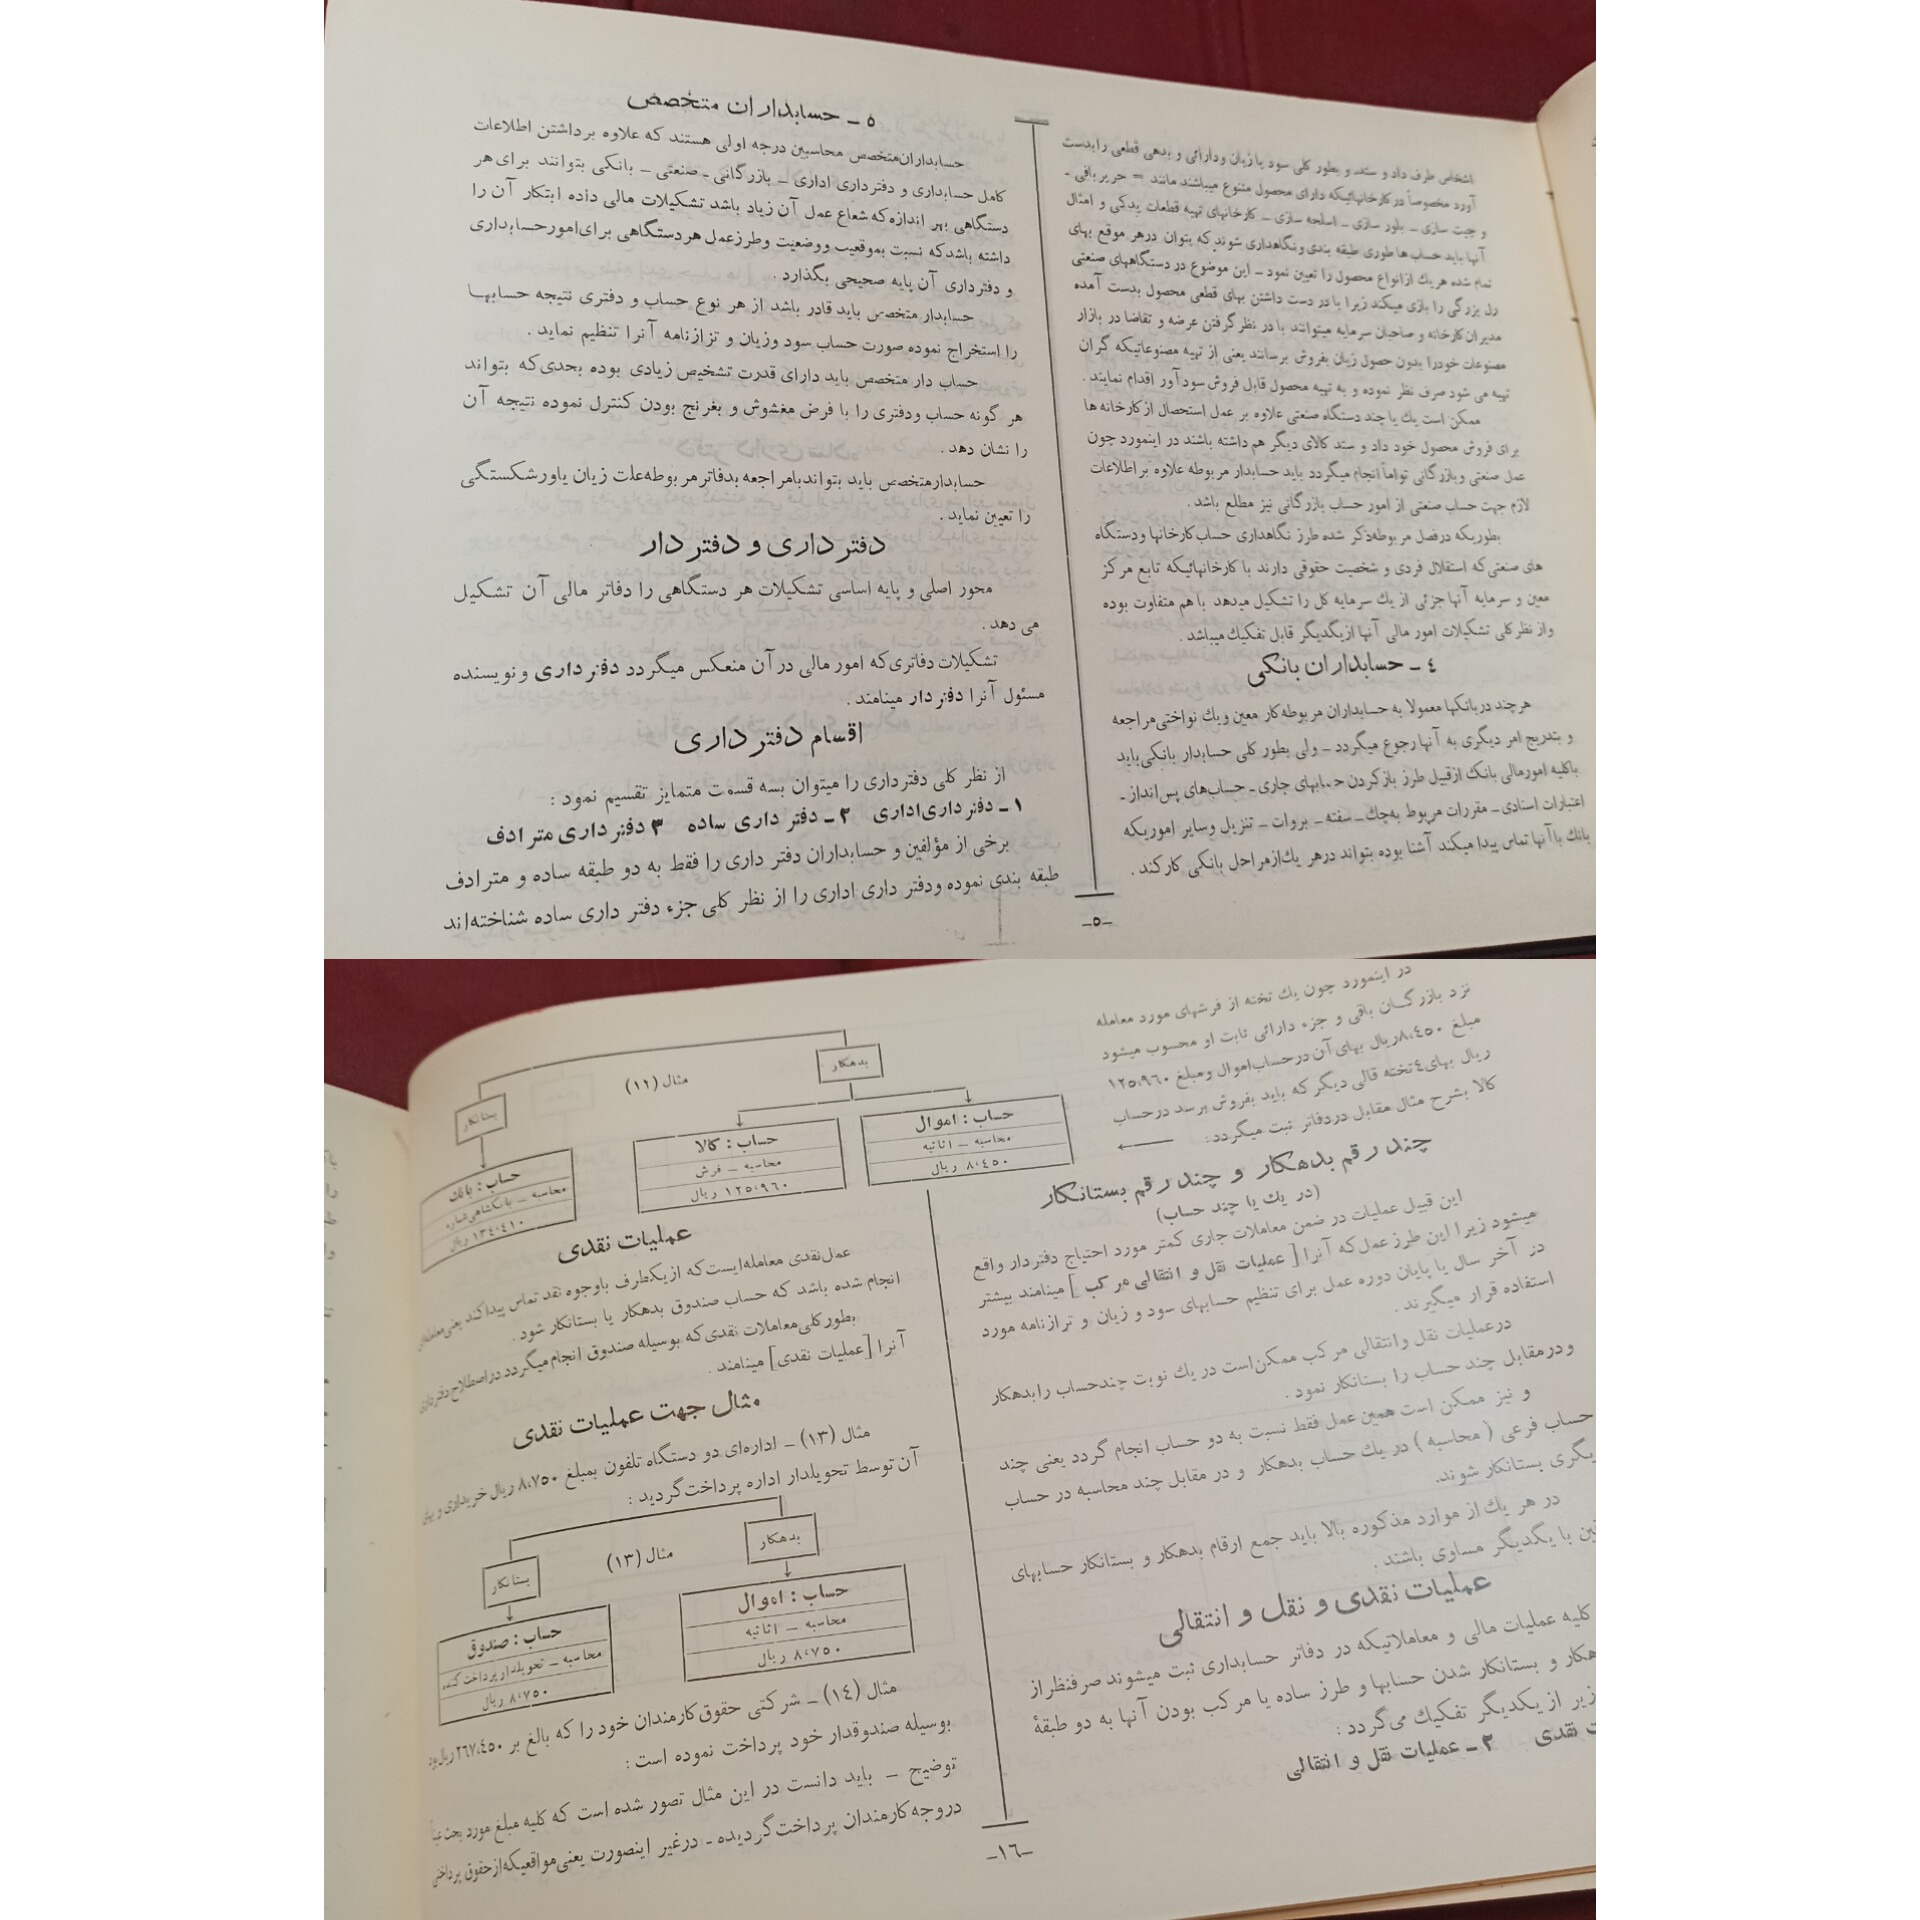 اشخاص طرف داد و ستد، و بطور کلی سود یا زیان ودارائی و بدهی قطعی رابدست
آورد مخصوصاً در کارخانهائیکه دارای محصول متنوع میباشند مانند = حریر بافی -
و چیت سازی - بلور سازی - اسلحه سازی - کارخانهای تهیه قطعات یدکی و امثال
آنها باید حساب ها طوری طبقه بندی ونگاهداری شوند که بتوان درهر موقع بهای
تمام شده هر یك ازانواع محصول را تعیین نمود - این موضوع در دستگاههای صنعتی
رل بزرگی را بازی میکند زیرا با در دست داشتن بهای قطعی محصول بدست آمده
مدیران کارخانه و صاحبان سرمایه میتوانند با در نظر گرفتن عرضه و تقاضا در بازار
مصنوعات خودرا بدون حصول زیان بفروش برسانند یعنی از تهیه مصنوعاتیکه گران
تهیه می شود صرف نظر نموده و به تهیه محصول قابل فروش سود آور اقدام نمایند .
ممکن است یك یا چند دستگاه صنعتی علاوه بر عمل استحصال از کارخانه ها
برای فروش محصول خود داد و ستد کالای دیگر هم داشته باشند در اینمورد چون
عمل صنعتی وبازرگانی تواماً انجام میگردد باید حسابدار مربوطه علاوه بر اطلاعات
لازم جهت حساب صنعتی از امور حساب بازرگانی نیز مطلع باشد .
بطوریکه درفصل مربوطه ذکر شده طرز نگاهداری حساب کارخانها ودستگاه
های صنعتی که استقلال فردی و شخصیت حقوقی دارند با کارخانهائیکه تابع مرکز
معین و سرمایه آنها جزئی از یك سرمایه کل را تشکیل میدهد با هم متفاوت بوده
واز نظر کلی تشکیلات امور مالی آنها ازیگدیگر قابل تفکیك میباشد .
٤ - حسابداران بانکی
هر چند دربانکها معمولا به حسابداران مربوطه کار معین ویك نواختی مراجعه
و بتدریج امر دیگری به آنها رجوع میگردد - ولی بطور کلی حسابدار بانکی باید
باکلیه امورمالی بانك ازقبیل طرز باز کردن حسابهای جاری - حساب‌های پس انداز -
اعتبارات اسنادی - مقررات مربوط به چك - سفته - بروات - تنزیل وسایر اموریکه
بانك با آنها تماس پیدا میکند آشنا بوده بتواند درهر یك ازمراحل بانکی کار کند .
-٥-
٥ - حسابداران متخصص
حسابداران متخصص محاسبین درجه اولی هستند که علاوه بر داشتن اطلاعات
کامل حسابداری و دفترداری اداری - بازرگانی - صنعتی - بانکی بتوانند برای هر
دستگاهی بهر اندازه که شعاع عمل آن زیاد باشد تشکیلات مالی داده ابتکار آن را
داشته باشد که نسبت بموقعیت ووضعیت وطرز عمل هر دستگاهی برای امورحسابداری
و دفترداری آن پایه صحیحی بگذارد .
حسابدار متخصص باید قادر باشد از هر نوع حساب و دفتری نتیجه حسابها
را استخراج نموده صورت حساب سود وزیان و ترازنامه آنرا تنظیم نماید .
حساب دار متخصص باید دارای قدرت تشخیص زیادی بوده بحدی که بتواند
هر گونه حساب ودفتری را با فرض مغشوش و بغرنج بودن کنترل نموده نتیجه آن
را نشان دهد .
حسابدارمتخصص باید بتواندبامراجعه بدفاتر مربوطه علت زیان یاورشکستگی
را تعیین نماید .
دفتر داری و دفتر دار
محور اصلی و پایه اساسی تشکیلات هر دستگاهی را دفاتر مالی آن تشکیل
می دهد .
تشکیلات دفاتری که امور مالی در آن منعکس میگردد دفتر داری و نویسنده
مسئول آنرا دفتر دار مینامند .
اقسام دفتر داری
از نظر کلی دفتر داری را میتوان بسه قسمت متمایز تقسیم نمود :
۱ - دفتر داری اداری ۲ - دفتر داری ساده ۳ دفتر داری مترادف
برخی از مؤلفین و حسابداران دفتر داری را فقط به دو طبقه ساده و مترادف
طبقه بندی نموده ودفتر داری اداری را از نظر کلی جزء دفتر داری ساده شناخته‌اند
در اینمورد چون یك تخته از فرشهای مورد معامله
نزد بازرگان باقی و جزء دارائی ثابت او محسوب میشود
مبلغ ۸،٤٥۰ ریال بهای آن در حساب اموال ومبلغ ۱۲٥،۹٦۰
ریال بهای ٤ تخته قالی دیگر که باید بفروش برسد درحساب
کالا بشرح مثال مقابل دردفاتر ثبت میگردد :
چند رقم بدهکار و چند رقم بستانکار
(در یك یا چند حساب)
این قبیل عملیات در ضمن معاملات جاری کمتر مورد احتیاج دفتر دار واقع
میشود زیرا این طرز عمل که آنرا [ عملیات نقل و انتقالی مرکب ] مینامند بیشتر
در آخر سال یا پایان دوره عمل برای تنظیم حسابهای سود و زیان و ترازنامه مورد
استفاده قرار میگیرند .
درعملیات نقل وانتقالی مرکب ممکن است در یك نوبت چند حساب رابدهکار
ودرمقابل چند حساب را بستانکار نمود .
و نیز ممکن است همین عمل فقط نسبت به دو حساب انجام گردد یعنی چند
حساب فرعی ( محاسبه ) در یك حساب بدهکار و در مقابل چند محاسبه در حساب
یگری بستانکار شوند.
در هر یك از موارد مذکوره بالا باید جمع ارقام بدهکار و بستانکار حسابهای
با یگدیگر مساوی باشند .
عملیات نقدی و نقل و انتقالی
کلیه عملیات مالی و معاملاتیکه در دفاتر حسابداری ثبت میشوند صرفنظر از
هکار و بستانکار شدن حسابها و طرز ساده یا مرکب بودن آنها به دو طبقهٔ
زیر از یکدیگر تفکیك می گردد :
ت نقدی ۲ - عملیات نقل و انتقالی
-۱٦-
بدهکار
مثال (۱۲)
بستانکار
حساب : اموال
محاسبه - اثاثیه
۸،٤٥۰ ریال
حساب : کالا
محاسبه - فرش
۱۲٥،۹٦۰ ریال
حساب : بانك
محاسبه - بانکشاهی شماره
۱۳٤،٤۱۰ ریال
عملیات نقدی
عمل نقدی معامله ایست که از یکطرف باوجوه نقد تماس پیدا کند یعنی معامله‌ای
انجام شده باشد که حساب صندوق بدهکار یا بستانکار شود .
بطور کلی معاملات نقدی که بوسیله صندوق انجام میگردد در اصطلاح دفترداری
آنرا [عملیات نقدی] مینامند .
مثال جهت عملیات نقدی
مثال (۱۳) - اداره‌ای دو دستگاه تلفون بمبلغ ۸،۷٥۰ ریال خریداری و بهای
آن توسط تحویلدار اداره پرداخت گردید :
بدهکار
مثال (۱۳)
بستانکار
حساب : اموال
محاسبه - اثاثیه
۸،۷٥۰ ریال
حساب : صندوق
محاسبه - تحویلدار پرداخت کننده
۸،۷٥۰ ریال
مثال (۱٤) - شرکتی حقوق کارمندان خود را که بالغ بر ۲٦۷،٤٥۰ ریال بود
بوسیله صندوقدار خود پرداخت نموده است :
توضیح - باید دانست در این مثال تصور شده است که کلیه مبلغ مورد بحث
دروجه کارمندان پرداخت گردیده - درغیر اینصورت یعنی مواقعیکه از حقوق پرداختی